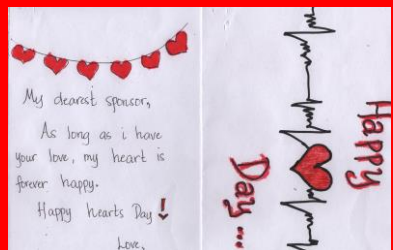 My dearest sponsor,
As long as i have
your love, my heart is
forever happy.
Happy hearts Day!
Love,
Happy
Day...